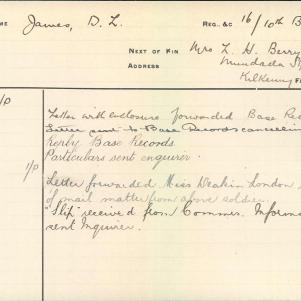 ME James, D. L. REG. &C 16/10th B
NEXT OF KIN Mrs L. H. Berry
ADDRESS Mundada St
Kilkenny
I/P Letter with enclosure forwarded Base Rec
Letter sent to Base Records cancelling
Reply Base Records
Particulars sent enquirer.
I/P Letter forwarded Miss Deakin London
of mail matter from above soldier
"Slip" received from Commer. Informa
sent Inquirer.